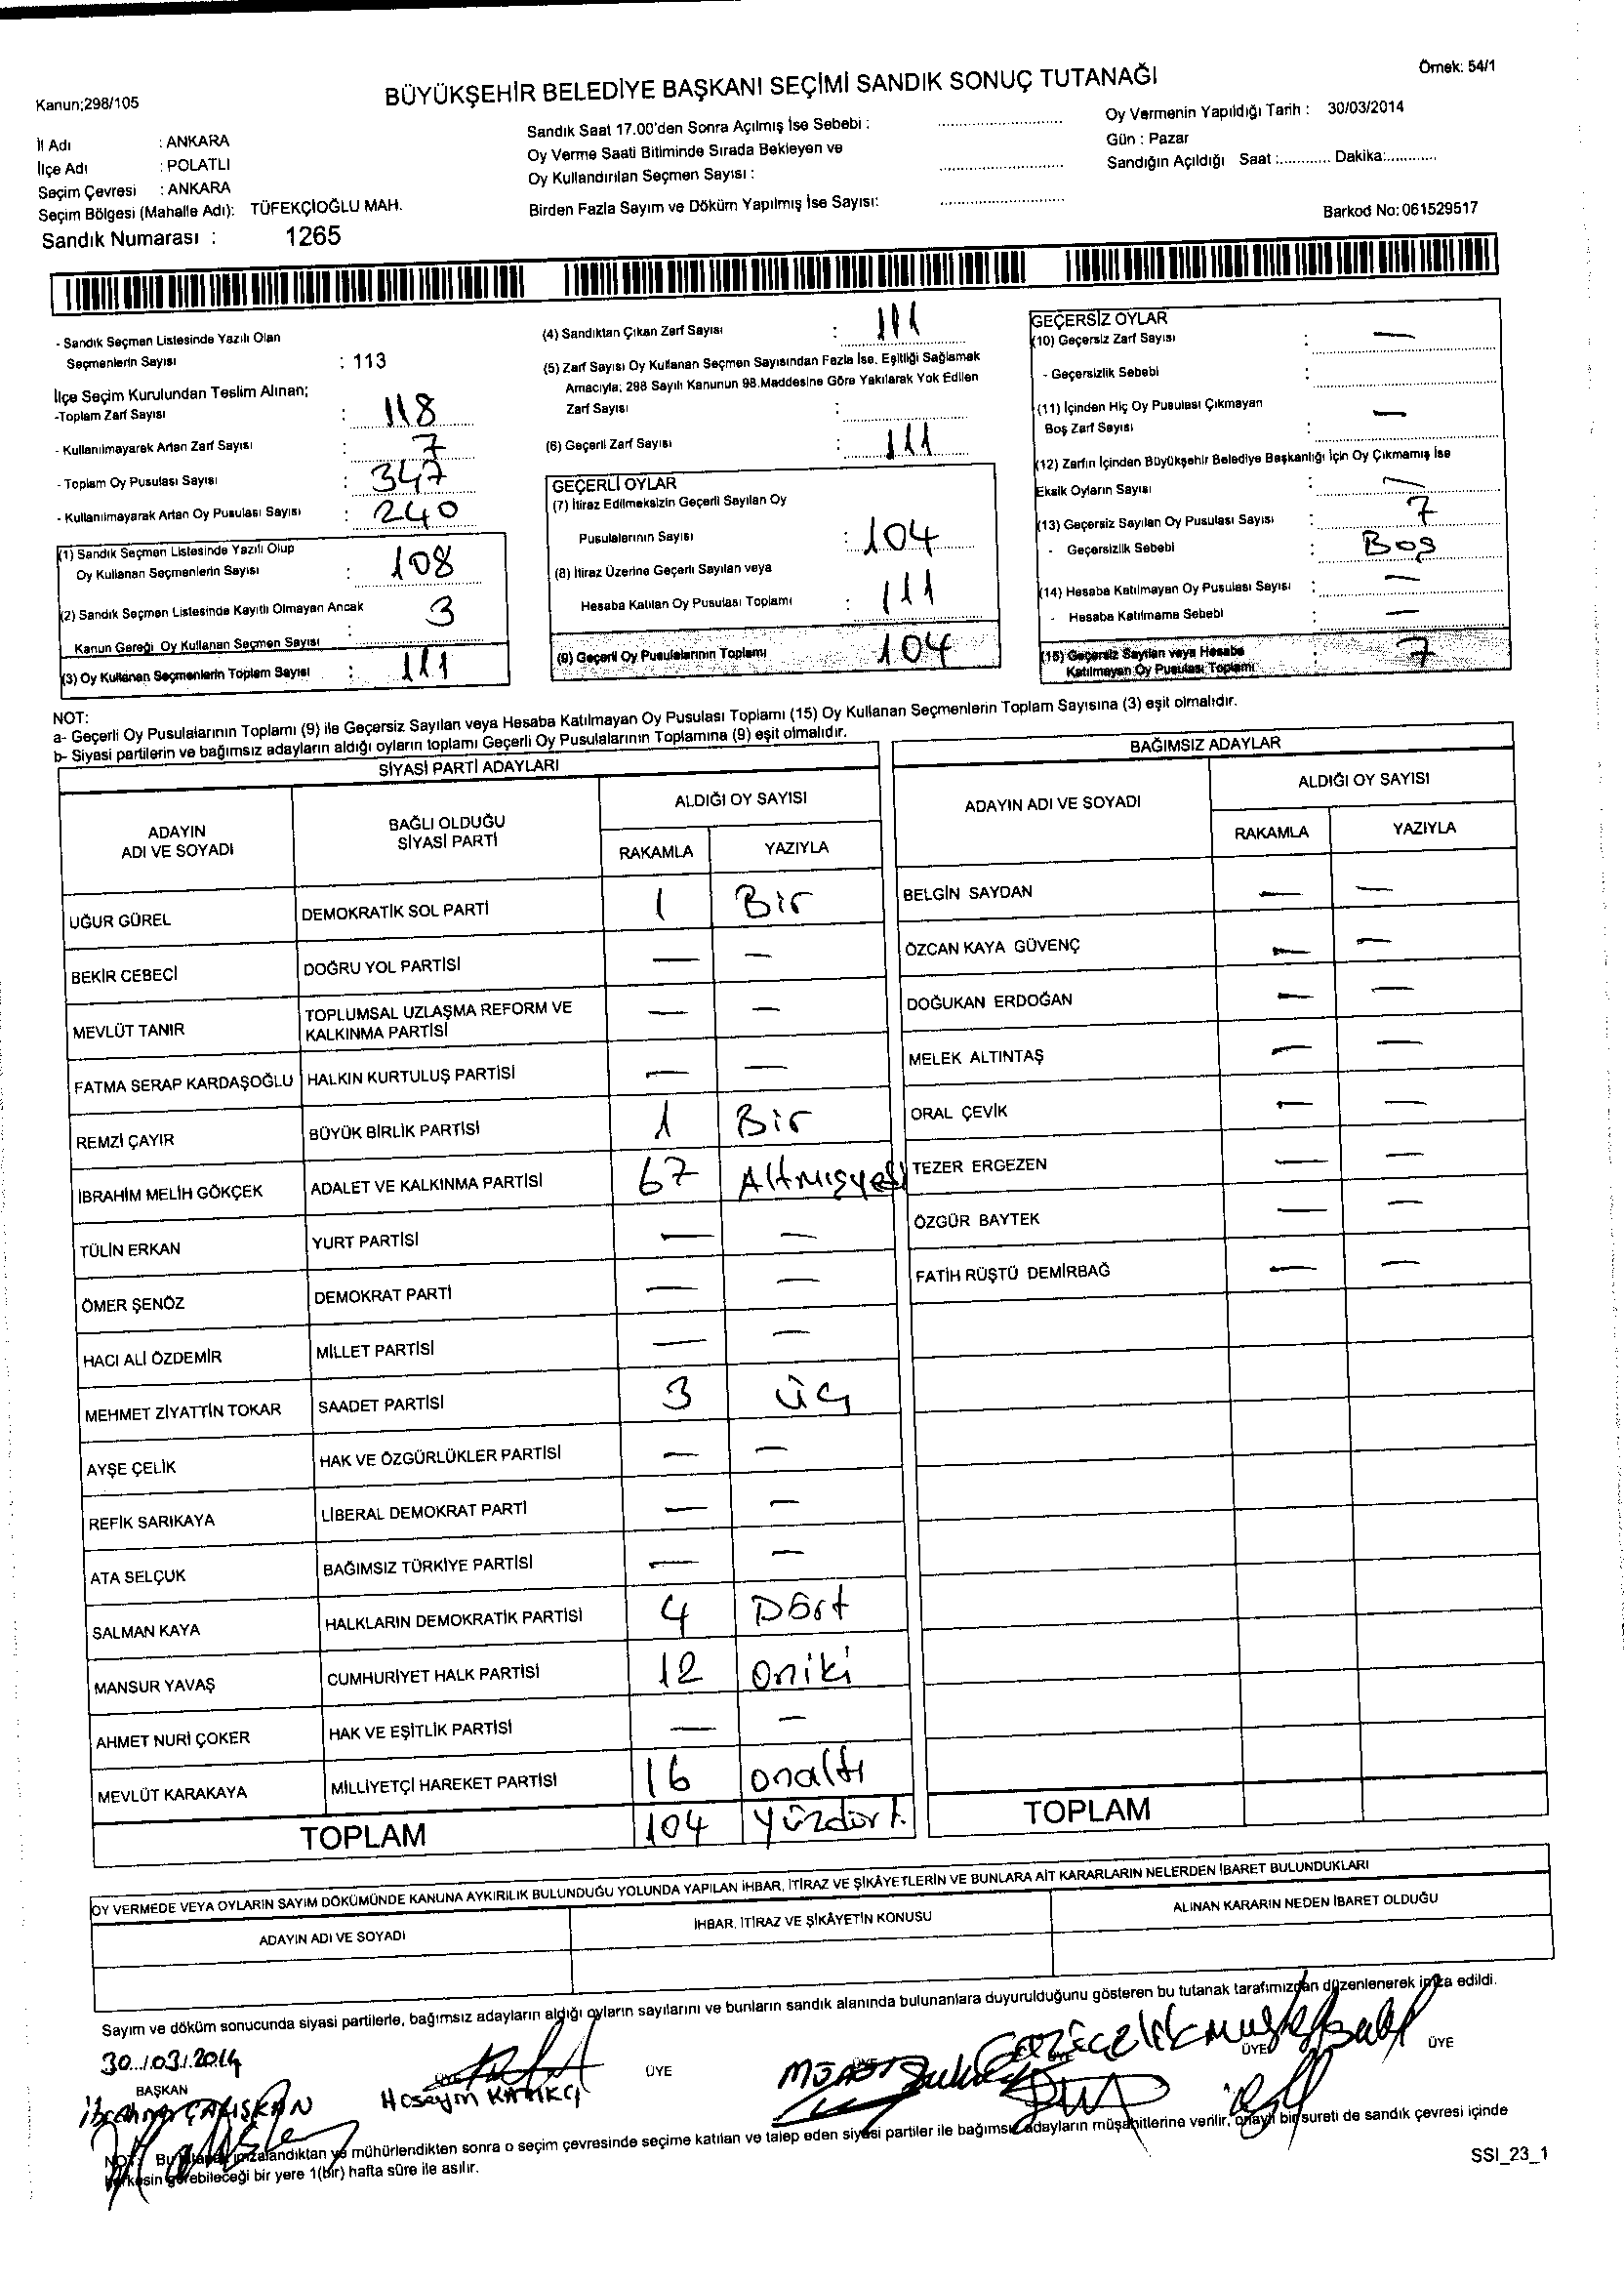 Örnek: 54/1
Kanun;298/105
BÜYÜKŞEHİR BELEDİYE BAŞKANI SEÇİMİ SANDIK SONUÇ TUTANAĞI
İl Adı : ANKARA
İlçe Adı : POLATLI
Seçim Çevresi : ANKARA
Seçim Bölgesi (Mahalle Adı): TÜFEKÇİOĞLU MAH.
Sandık Numarası : 1265
Sandık Saat 17.00'den Sonra Açılmış İse Sebebi :
Oy Verme Saati Bitiminde Sırada Bekleyen ve
Oy Kullandırılan Seçmen Sayısı :
Birden Fazla Sayım ve Döküm Yapılmış İse Sayısı:
Oy Vermenin Yapıldığı Tarih : 30/03/2014
Gün : Pazar
Sandığın Açıldığı Saat :............ Dakika:............
Barkod No: 061529517
- Sandık Seçmen Listesinde Yazılı Olan
Seçmenlerin Sayısı : 113
İlçe Seçim Kurulundan Teslim Alınan;
-Toplam Zarf Sayısı : 118
- Kullanılmayarak Artan Zarf Sayısı : 7
- Toplam Oy Pusulası Sayısı : 347
- Kullanılmayarak Artan Oy Pusulası Sayısı : 240
(1) Sandık Seçmen Listesinde Yazılı Olup
Oy Kullanan Seçmenlerin Sayısı : 108
(2) Sandık Seçmen Listesinde Kayıtlı Olmayan Ancak
Kanun Gereği Oy Kullanan Seçmen Sayısı : 3
(3) Oy Kullanan Seçmenlerin Toplam Sayısı : 111
(4) Sandıktan Çıkan Zarf Sayısı : 111
(5) Zarf Sayısı Oy Kullanan Seçmen Sayısından Fazla İse, Eşitliği Sağlamak
Amacıyla; 298 Sayılı Kanunun 98.Maddesine Göre Yakılarak Yok Edilen
Zarf Sayısı :
(6) Geçerli Zarf Sayısı : 111
GEÇERLİ OYLAR
(7) İtiraz Edilmeksizin Geçerli Sayılan Oy
Pusulalarının Sayısı : 104
(8) İtiraz Üzerine Geçerli Sayılan veya
Hesaba Katılan Oy Pusulası Toplamı : 111
(9) Geçerli Oy Pusulalarının Toplamı 104
GEÇERSİZ OYLAR
(10) Geçersiz Zarf Sayısı : —
- Geçersizlik Sebebi :
(11) İçinden Hiç Oy Pusulası Çıkmayan
Boş Zarf Sayısı : —
(12) Zarfın İçinden Büyükşehir Belediye Başkanlığı İçin Oy Çıkmamış İse
Eksik Oyların Sayısı : —
(13) Geçersiz Sayılan Oy Pusulası Sayısı : 7
- Geçersizlik Sebebi : Boş
(14) Hesaba Katılmayan Oy Pusulası Sayısı : —
- Hesaba Katılmama Sebebi : —
(15) Geçersiz Sayılan veya Hesaba
Katılmayan Oy Pusulası Toplamı : 7
NOT:
a- Geçerli Oy Pusulalarının Toplamı (9) ile Geçersiz Sayılan veya Hesaba Katılmayan Oy Pusulası Toplamı (15) Oy Kullanan Seçmenlerin Toplam Sayısına (3) eşit olmalıdır.
b- Siyasi partilerin ve bağımsız adayların aldığı oyların toplamı Geçerli Oy Pusulalarının Toplamına (9) eşit olmalıdır.
SİYASİ PARTİ ADAYLARI
ADAYIN ADI VE SOYADI BAĞLI OLDUĞU SİYASİ PARTİ ALDIĞI OY SAYISI
RAKAMLA YAZIYLA
UĞUR GÜREL DEMOKRATİK SOL PARTİ 1 Bir
BEKİR CEBECİ DOĞRU YOL PARTİSİ — —
MEVLÜT TANIR TOPLUMSAL UZLAŞMA REFORM VE KALKINMA PARTİSİ — —
FATMA SERAP KARDAŞOĞLU HALKIN KURTULUŞ PARTİSİ — —
REMZİ ÇAYIR BÜYÜK BİRLİK PARTİSİ 1 Bir
İBRAHİM MELİH GÖKÇEK ADALET VE KALKINMA PARTİSİ 67 Altmışyedi
TÜLİN ERKAN YURT PARTİSİ — —
ÖMER ŞENÖZ DEMOKRAT PARTİ — —
HACI ALİ ÖZDEMİR MİLLET PARTİSİ — —
MEHMET ZİYATTİN TOKAR SAADET PARTİSİ 3 üç
AYŞE ÇELİK HAK VE ÖZGÜRLÜKLER PARTİSİ — —
REFİK SARIKAYA LİBERAL DEMOKRAT PARTİ — —
ATA SELÇUK BAĞIMSIZ TÜRKİYE PARTİSİ — —
SALMAN KAYA HALKLARIN DEMOKRATİK PARTİSİ 4 Dört
MANSUR YAVAŞ CUMHURİYET HALK PARTİSİ 12 oniki
AHMET NURİ ÇOKER HAK VE EŞİTLİK PARTİSİ — —
MEVLÜT KARAKAYA MİLLİYETÇİ HAREKET PARTİSİ 16 onaltı
TOPLAM 104 Yüzdört.
BAĞIMSIZ ADAYLAR
ADAYIN ADI VE SOYADI ALDIĞI OY SAYISI
RAKAMLA YAZIYLA
BELGİN SAYDAN — —
ÖZCAN KAYA GÜVENÇ — —
DOĞUKAN ERDOĞAN — —
MELEK ALTINTAŞ — —
ORAL ÇEVİK — —
TEZER ERGEZEN — —
ÖZGÜR BAYTEK — —
FATİH RÜŞTÜ DEMİRBAĞ — —
TOPLAM
OY VERMEDE VEYA OYLARIN SAYIM DÖKÜMÜNDE KANUNA AYKIRILIK BULUNDUĞU YOLUNDA YAPILAN İHBAR, İTİRAZ VE ŞİKÂYETLERİN VE BUNLARA AİT KARARLARIN NELERDEN İBARET BULUNDUKLARI
ADAYIN ADI VE SOYADI İHBAR, İTİRAZ VE ŞİKÂYETİN KONUSU ALINAN KARARIN NEDEN İBARET OLDUĞU
Sayım ve döküm sonucunda siyasi partilerle, bağımsız adayların aldığı oyların sayılarını ve bunların sandık alanında bulunanlara duyurulduğunu gösteren bu tutanak tarafımızdan düzenlenerek imza edildi.
30/03/2014
BAŞKAN ÜYE ÜYE ÜYE
NOT: Bu tutanak imzalandıktan ve mühürlendikten sonra o seçim çevresinde seçime katılan ve talep eden siyasi partiler ile bağımsız adayların müşahitlerine verilir, onaylı bir sureti de sandık çevresi içinde
herkesin görebileceği bir yere 1(bir) hafta süre ile asılır.
SSI_23_1